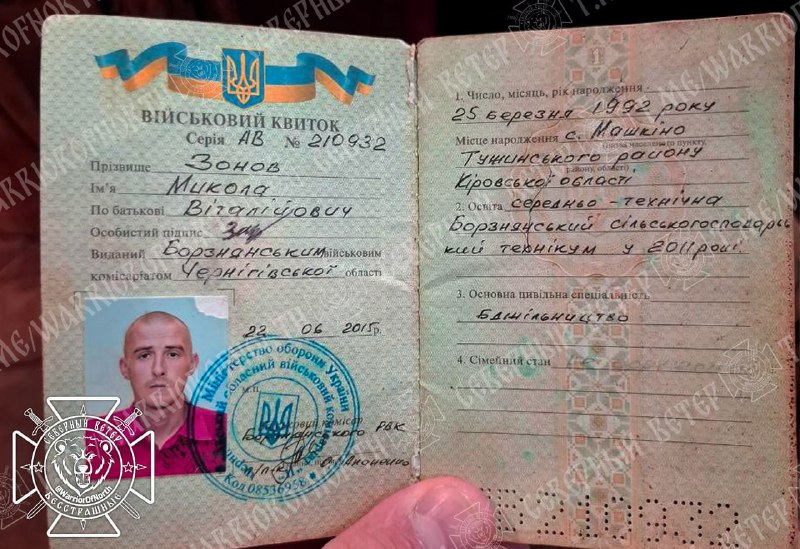 ВІЙСЬКОВИЙ КВИТОК
Серія АВ № 210932
Прізвище Зонов
Ім'я Микола
По батькові Віталійович
Особистий підпис
Виданий Борзнянським військовим
комісаріатом Чернігівської області
22 06 2015р.
Міністерство оборони України
Код 08536956
М.П.
Борзнянського РВК
СЕВЕРНЫЙ ВЕТЕР
@WarriorOfNorth
БЕССТРАШНЫЕ
1
1. Число, місяць, рік народження
25 березня 1992 року
Місце народження с. Машкіно
(назва населеного пункту,
Тужинського району
району, області)
Кіровської області
2. Освіта середньо-технічна
Борзнянський сільськогосподарсь
кий технікум у 2011 році.
3. Основна цивільна спеціальність
Бджільництво
4. Сімейний стан
АВ210932